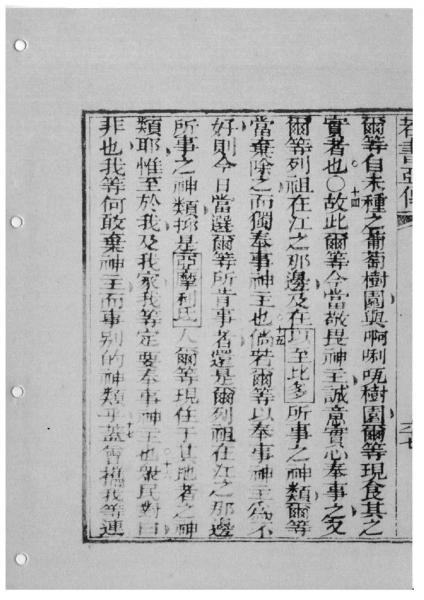 若書亞傳
爾等自未種之葡萄樹園與啊唎咓樹園爾等現食其之
實者也○十四故此爾等今當敬畏神主誠意實心奉事之又
爾等列祖在江之那邊及在以至比多所事之神類爾等
當棄除之而獨奉事神主也十五倘若爾等以奉事神主為不
好則今日當選爾等所肯事者還是爾列祖在江之那邊
所事之神類抑是亞摩利氏人爾等現住于其地者之神
類耶惟至於我及我家我等定要奉事神主也眾民對曰
非也我等何敢棄神主而事別的神類乎十七蓋曾攜我等連